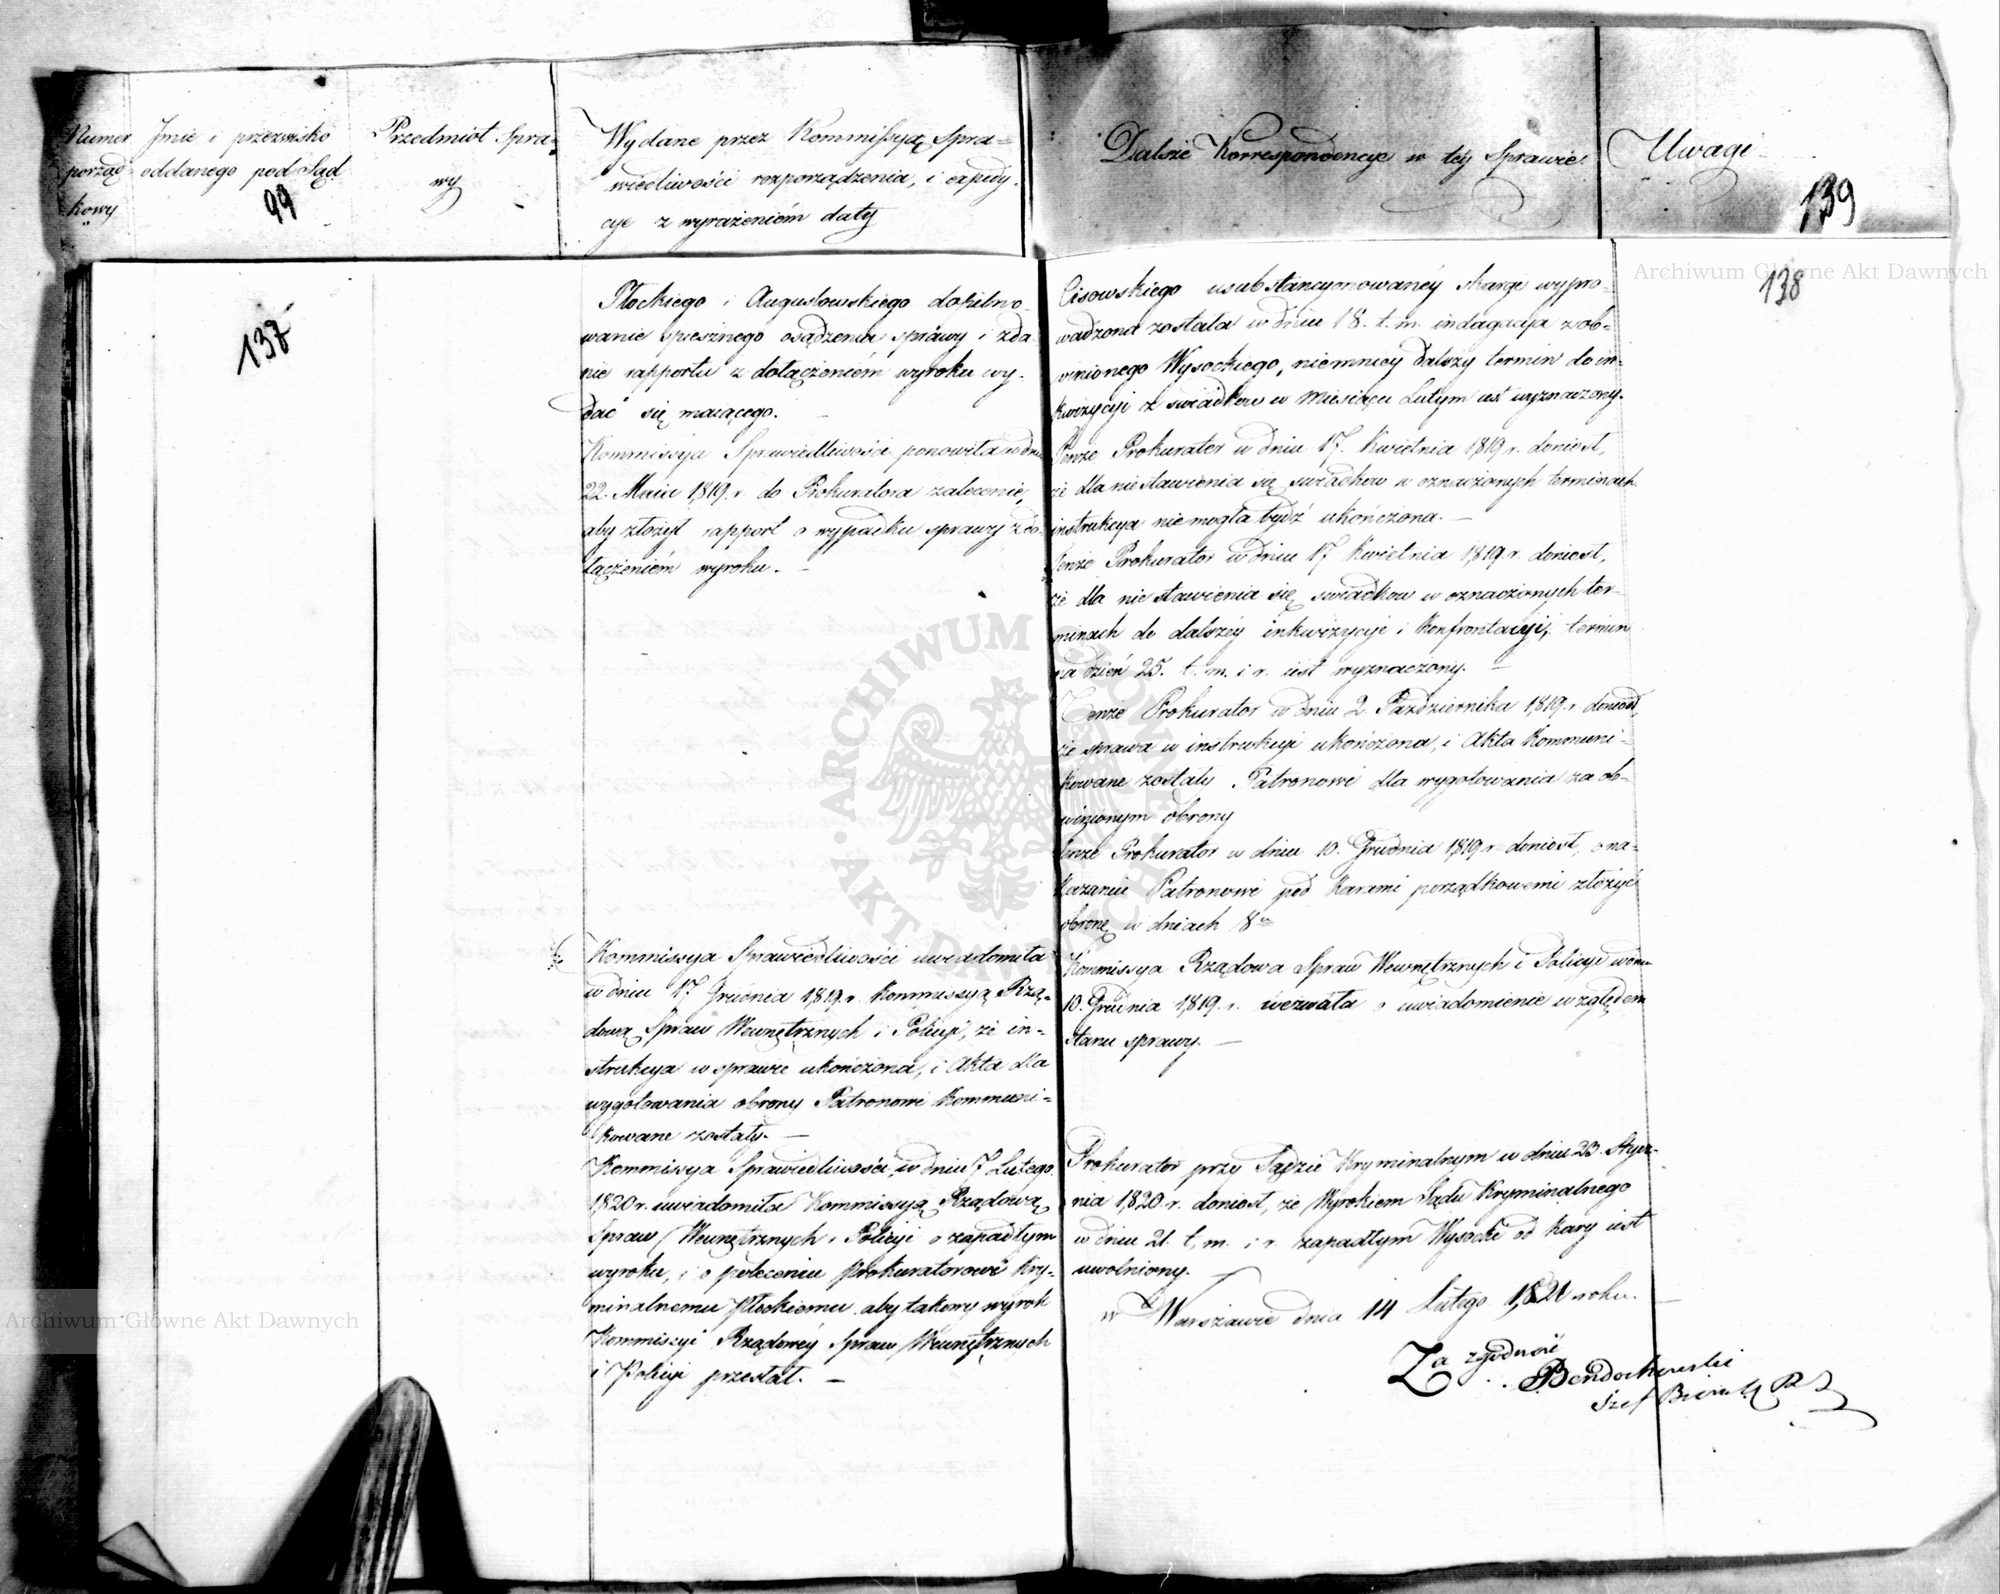 Numer
porząd=
kowy
Jmie i przezwisko
oddanego pod Sąd
99
Przedmiot Spra=
wy
Wydane przez Kommissyą Spra=
wiedliwości rozporządzenia, i expedy=
cye z wyrażeniem daty
Dalsze Korrespondencye w tey Sprawie.
Uwagi
139
137
138
Płockiego i Augustowskiego dopilno=
wanie spiesznego osądzenia sprawy i zda=
nie rapportu z dołączeniem wyroku wy=
dać się maiącego. —
Kommissya Sprawiedliwości ponowiła w dniu
22. Maia 1819. r. do Prokuratora zalecenie,
aby złożył rapport o wypadku sprawy z do=
łączeniem wyroku. —
Kommissya Sprawiedliwości uwiadomiła
w dniu 17 Grudnia 1819. r. Kommissyą Rzą=
dową Spraw Wewnętrznych i Policyi, że in=
strukcya w sprawie ukończona, i Akta dla
wygotowania obrony Patronowi Kommuni=
kowane zostały. —
Kommissya Sprawiedliwości w dniu 7 Lutego
1820 r. uwiadomiła Kommissyą Rządową
Spraw Wewnętrznych i Policyi o zapadłym
wyroku, i o poleceniu Prokuratorowi Kry=
minalnemu Płockiemu, aby takowy wyrok
Kommissyi Rządowéy Spraw Wewnętrznych
i Policyi przesłał. —
Cisowskiego usubstancyonowanéy skargi wypro=
wadzona została w dniu 18. t. m. indagacya z ob=
winionego Wysockiego, niemniey dalszy termin do in=
kwizycyi z swiadków w Miesiącu Lutym iest wyznaczony.
Tenże Prokurator w dniu 17. Kwietnia 1819 r. doniosł,
że dla niestawienia się swiadków w oznaczonych terminach
instrukcya nie mogła bydź ukończona. —
Tenże Prokurator w dniu 17 Kwietnia 1819 r. doniosł,
że dla nie stawienia się swiadków w oznaczonych ter=
minach do dalszéy inkwizycyi i Konfrontacyi, termin
na dzień 25. t. m. i r. iest wyznaczony. —
Tenże Prokurator w dniu 2. Pazdziernika 1819 r. doniosł,
że sprawa w instrukcyi ukończona, i Akta Kommuni=
kowane zostały Patronowi dla wygotowania za ob=
winionym obrony
Tenże Prokurator w dniu 10. Grudnia 1819 r. doniosł, o na=
kazaniu Patronowi pod Karami porządkowemi złożyć
obronę w dniach 8
Kommissya Rządowa Spraw Wewnętrznych i Policyi w dniu
10. Grudnia 1819. r. wezwała o uwiadomienie względem
stanu sprawy. —
Prokurator przy Sądzie Kryminalnym w dniu 23. Stycz=
nia 1820. r. doniosł, że Wyrokiem Sądu Kryminalnego
w dniu 21. t. m. i r. zapadłym Wysocki od kary iest
uwolniony. —
w Warszawie dnia 14 Lutego 1821 roku. —
Za zgodność
Szef
Archiwum Główne Akt Dawnych
Archiwum Główne Akt Dawnych
ARCHIWUM GŁÓWNE AKT DAWNYCH